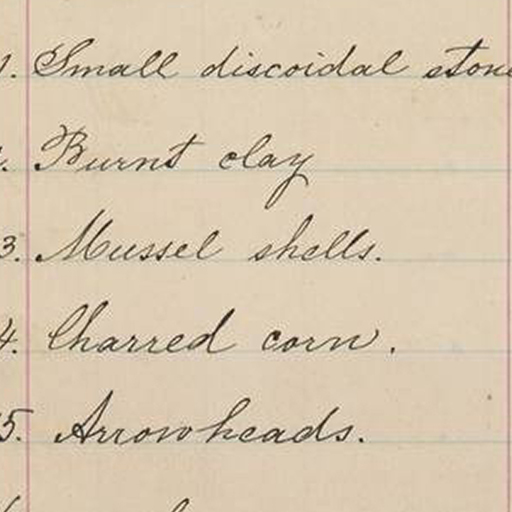 1. Small discoidal stone
Burnt clay
3. Mussel shells.
4. Charred corn.
5. Arrowheads.